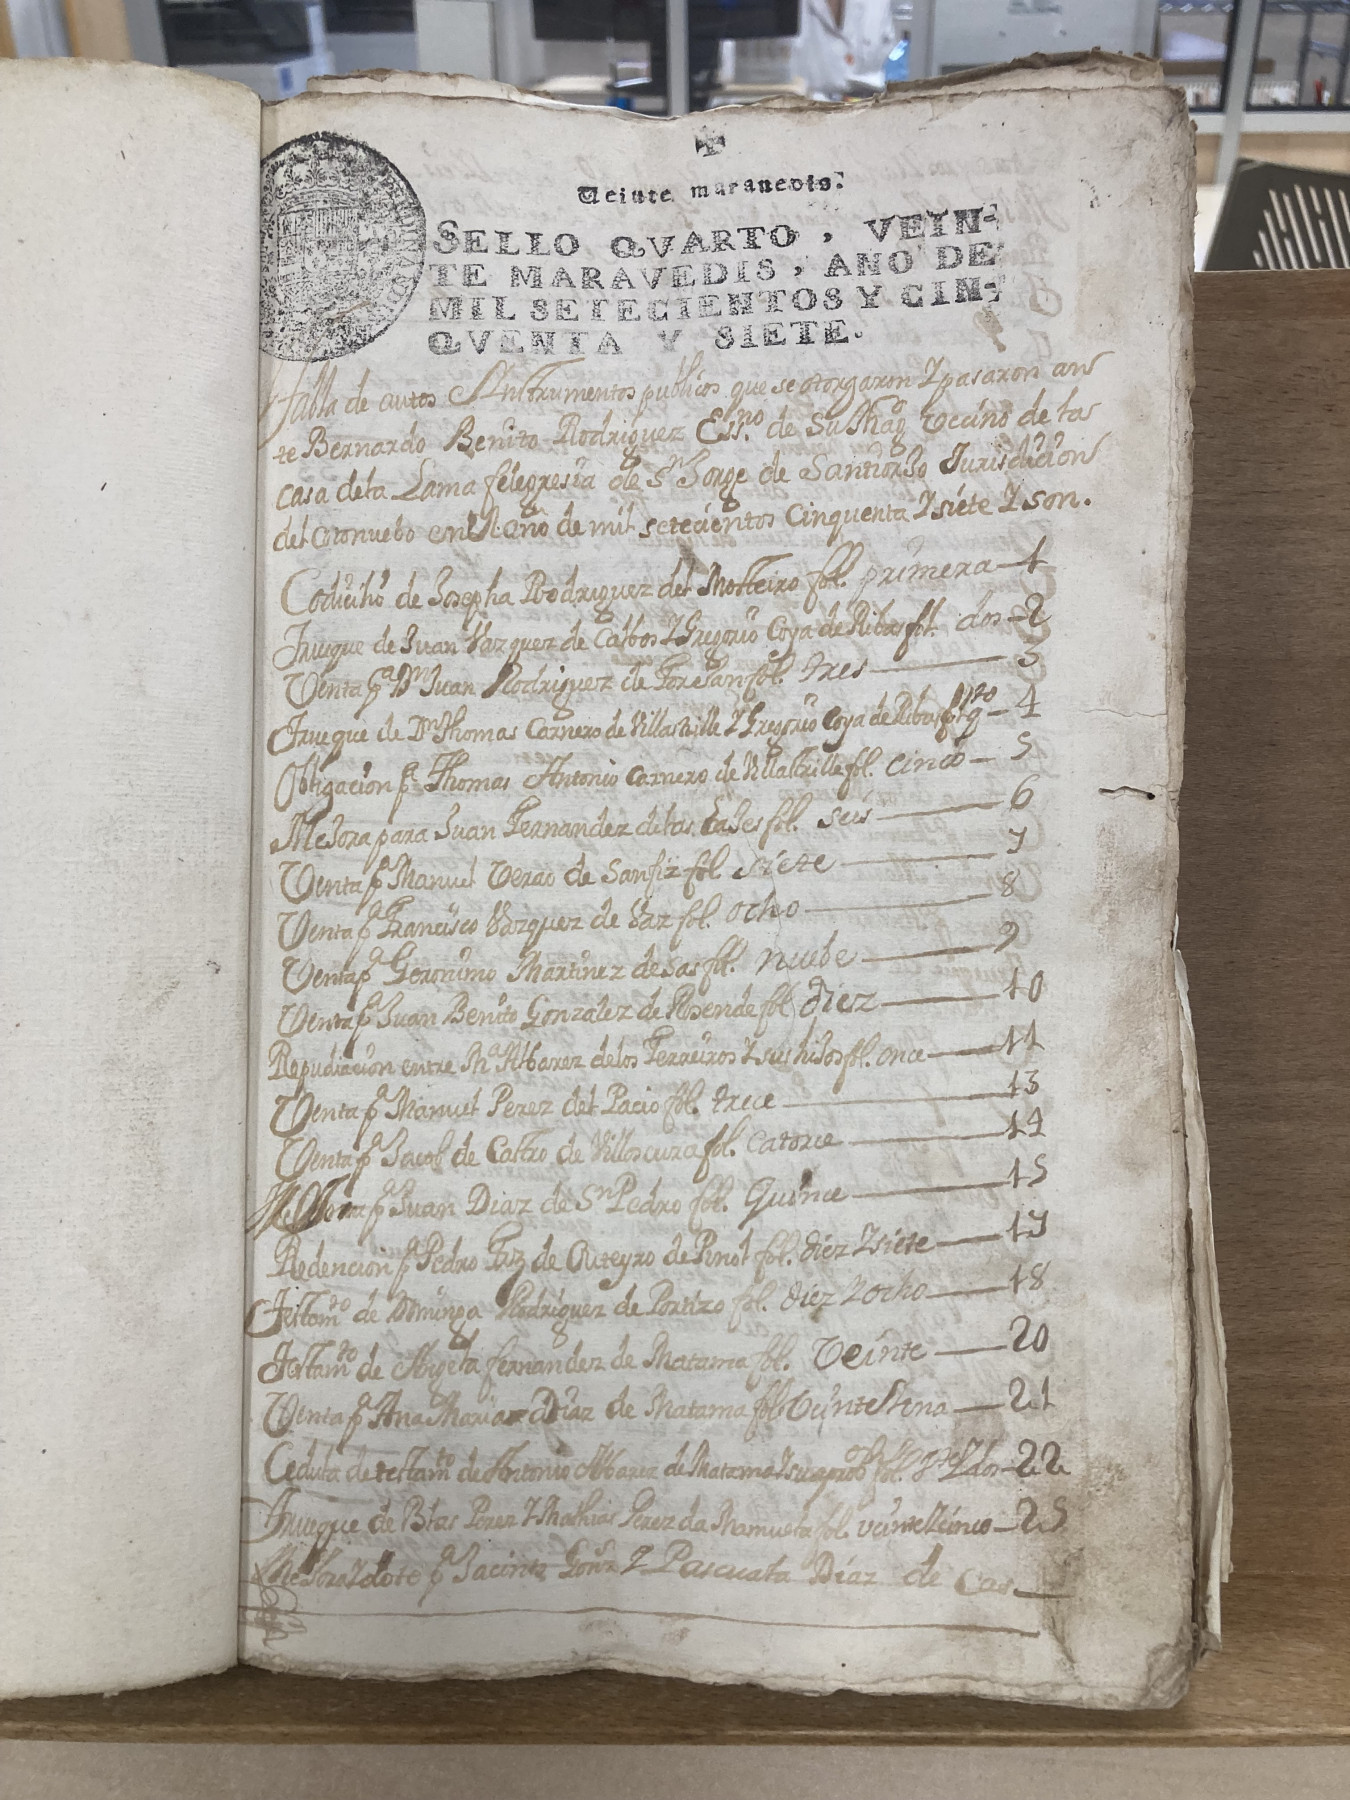 Veinte maravedis.
SELLO QVARTO, VEIN-
TE MARAVEDIS, AÑO DE
MIL SETECIENTOS Y CIN-
QVENTA Y SIETE.
Tabla de autos Instrumentos publicos que se otorgaron Y pasaron an
te Bernardo Benito Rodriguez Ess.no de Su Mag.d vecino de la
casa de la Lama felegresia de Sn Jorge de Santiorjo Jurisdicion
del Cotonuebo en el año de mil setecientos Cinquenta Y siete Y son.
Codicilio de Josepha Rodriguez del Mosteiro fol. primera 1
Trueque de Juan Vazquez de Calbos Y Gregorio Coya de Ribas fol. dos 2
Venta pa Dn Juan Rodriguez de fol. tres 3
Trueque de Dn Thomas Carnero de Y Gregorio Coya de Ribas fol. qto 4
Obligacion pa Thomas Antonio Carnero de fol. cinco 5
Mejora para Juan Fernandez de las fol. seis 6
Venta pa Manuel Verao de Sanfiz fol siete 7
Venta pa Francisco Vazquez de Var fol. ocho 8
Venta pa Geronimo Martinez de Sas fol. nuebe 9
Venta pa Juan Benito Gonzalez de Rosende fol diez 10
Repudiacion entre Ma Albarez de los Ferreiros Y sus hijos fol. once 11
Venta pa Manuel Perez del Pacio fol. trece 13
Venta pa Jacob de Castro de Villoscura fol. catorce 14
Mejora pa Juan Diaz de Sn Pedro fol. Quince 15
Redencion pa Pedro Frz de Outeyro de Pinol fol. diez Y siete 17
Testamto de Dominga Rodriguez de Portizo fol. diez Y ocho 18
Testamto de Angela fernandez de Matama fol. Veinte 20
Venta pa Ana Maria Diaz de Matama fol Veinte Y una 21
Cedula de testamto de Antonio Albarez de Matama Y su aprobon fol. Y dos 22
Trueque de Blas Perez Y Mathias Perez da Mamuela fol. veinte Y cinco 25
Mejora Y dote pa Jacinto Gonz Y Pascuala Diaz de Cas